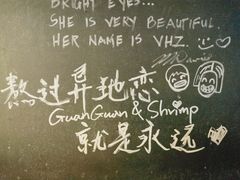 BRIGHT EYES...
SHE IS VERY BEAUTIFUL.
HER NAME IS VHZ.
熬过异地恋
GuanGuan & Shrimp
就是永远